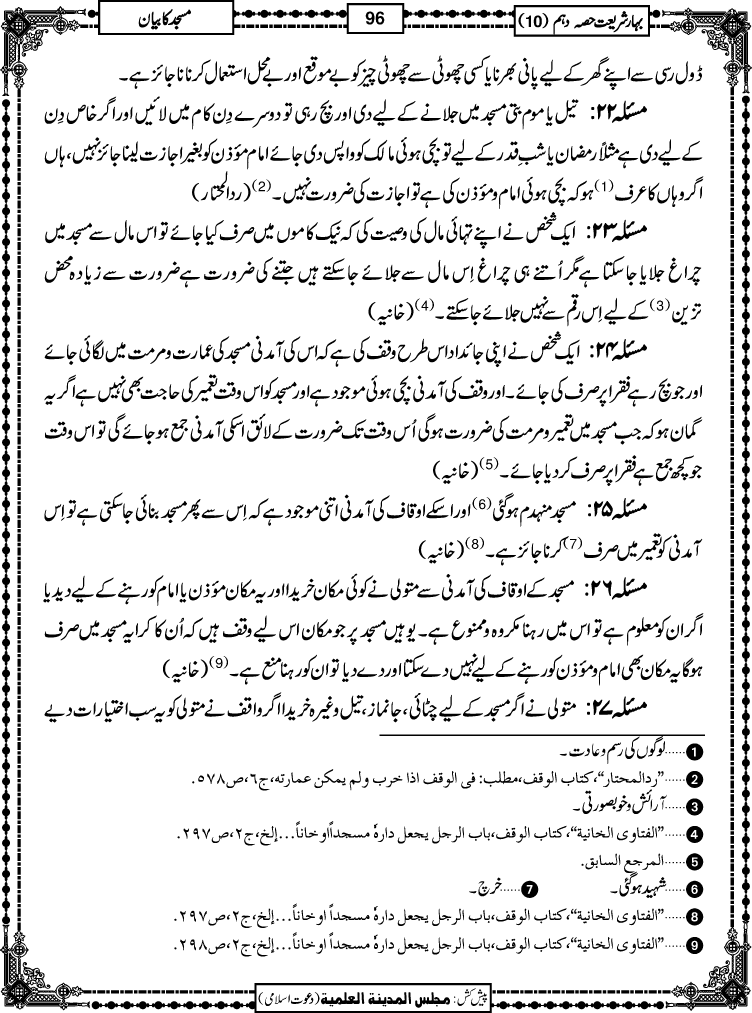 بہارِ شریعت حصہ دہم (10)
96
مسجد کا بیان
ڈول رسی سے اپنے گھر کے لیے پانی بھرنا یا کسی چھوٹی سے چھوٹی چیز کو بے موقع اور بے محل استعمال کرنا ناجائز ہے۔
مسئلہ ۲۲: تیل یا موم بتی مسجد میں جلانے کے لیے دی اور بچ رہی تو دوسرے دِن کام میں لائیں اور اگر خاص دِن
کے لیے دی ہے مثلاً رمضان یا شبِ قدر کے لیے تو بچی ہوئی مالک کو واپس دی جائے امام مؤذن کو بغیر اجازت لینا جائز نہیں، ہاں
اگر وہاں کا عرف (1) ہو کہ بچی ہوئی امام و مؤذن کی ہے تو اجازت کی ضرورت نہیں۔ (2) (ردالمحتار)
مسئلہ ۲۳: ایک شخص نے اپنے تہائی مال کی وصیت کی کہ نیک کاموں میں صرف کیا جائے تو اس مال سے مسجد میں
چراغ جلایا جا سکتا ہے مگر اُتنے ہی چراغ اِس مال سے جلائے جا سکتے ہیں جتنے کی ضرورت ہے ضرورت سے زیادہ محض
تزین (3) کے لیے اِس رقم سے نہیں جلائے جا سکتے۔ (4) (خانیہ)
مسئلہ ۲۴: ایک شخص نے اپنی جائداد اس طرح وقف کی ہے کہ اس کی آمدنی مسجد کی عمارت و مرمت میں لگائی جائے
اور جو بچ رہے فقرا پر صرف کی جائے۔ اور وقف کی آمدنی بچی ہوئی موجود ہے اور مسجد کو اس وقت تعمیر کی حاجت بھی نہیں ہے اگر یہ
گمان ہو کہ جب مسجد میں تعمیر و مرمت کی ضرورت ہوگی اُس وقت تک ضرورت کے لائق اسکی آمدنی جمع ہو جائے گی تو اس وقت
جو کچھ جمع ہے فقرا پر صرف کر دیا جائے۔ (5) (خانیہ)
مسئلہ ۲۵: مسجد منہدم ہوگئی (6) اور اسکے اوقاف کی آمدنی اتنی موجود ہے کہ اِس سے پھر مسجد بنائی جا سکتی ہے تو اِس
آمدنی کو تعمیر میں صرف (7) کرنا جائز ہے۔ (8) (خانیہ)
مسئلہ ۲۶: مسجد کے اوقاف کی آمدنی سے متولی نے کوئی مکان خریدا اور یہ مکان مؤذن یا امام کو رہنے کے لیے دیدیا
اگر ان کو معلوم ہے تو اس میں رہنا مکروہ و ممنوع ہے۔ یوہیں مسجد پر جو مکان اس لیے وقف ہیں کہ اُن کا کرایہ مسجد میں صرف
ہوگا یہ مکان بھی امام و مؤذن کو رہنے کے لیے نہیں دے سکتا اور دے دیا تو ان کو رہنا منع ہے۔ (9) (خانیہ)
مسئلہ ۲۷: متولی نے اگر مسجد کے لیے چٹائی، جانماز، تیل وغیرہ خریدا اگر واقف نے متولی کو یہ سب اختیارات دیے
1 ......لوگوں کی رسم و عادت۔
2 ......”ردالمحتار“، کتاب الوقف، مطلب: فی الوقف اذا خرب ولم یمکن عمارته، ج٦، ص٥٧٨.
3 ......آرائش و خوبصورتی۔
4 ......”الفتاوی الخانیة“، کتاب الوقف، باب الرجل یجعل دارہٗ مسجداً اوخاناً...إلخ، ج٢، ص٢٩٧.
5 ......المرجع السابق.
6 ......شہید ہوگئی۔ 7 ......خرچ۔
8 ......”الفتاوی الخانیة“، کتاب الوقف، باب الرجل یجعل دارہٗ مسجداً اوخاناً...إلخ، ج٢، ص٢٩٧.
9 ......”الفتاوی الخانیة“، کتاب الوقف، باب الرجل یجعل دارہٗ مسجداً اوخاناً...إلخ، ج٢، ص٢٩٨.
پیش کش: مجلس المدینة العلمیة (دعوت اسلامی)